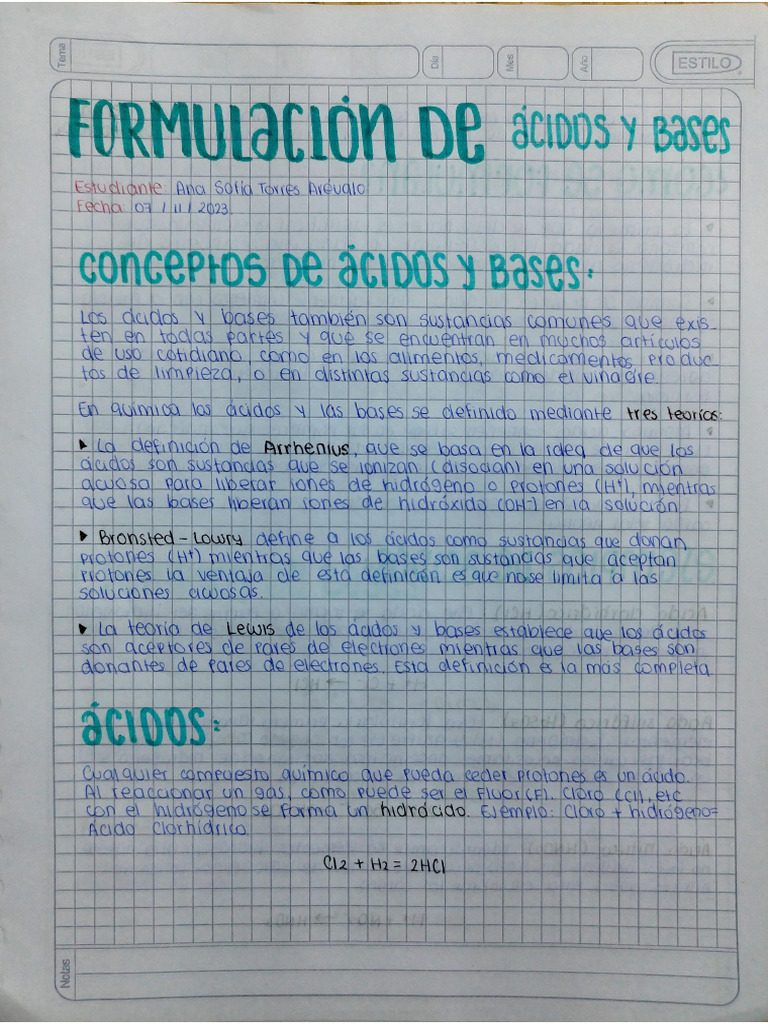 Tema
Día
Mes
Año
ESTILO
FORMULACIÓN DE ÁCIDOS Y BASES
Estudiante: Ana Sofía Torres Arévalo
Fecha: 07 / 11 / 2023.
CONCEPTOS DE ÁCIDOS Y BASES:
Los ácidos y bases también son sustancias comunes que exis-
ten en todas partes y que se encuentran en muchos artículos
de uso cotidiano, como en los alimentos, medicamentos, produc-
tos de limpieza, o en distintas sustancias como el vinagre.
En química los ácidos y las bases se definido mediante tres teorías:
▸ La definición de Arrhenius, que se basa en la idea de que los
ácidos son sustancias que se ionizan (disocian) en una solución
acuosa para liberar iones de hidrógeno o protones (H⁺), mientras
que las bases liberan iones de hidróxido (OH⁻) en la solución.
▸ Bronsted - Lowry define a los ácidos como sustancias que donan
protones (H⁺) mientras que las bases son sustancias que aceptan
protones. la ventaja de esta definición es que no se limita a las
soluciones acuosas.
▸ La teoría de Lewis de los ácados y bases establece que los ácidos
son aceptores de pares de electrones mientras que las bases son
donantes de pares de electrones. Esta definición es la más completa
ÁCIDOS:
Cualquier compuesto químico que pueda ceder protones es un ácido.
Al reaccionar un gas, como puede ser el Fluor (F). Cloro (Cl), etc
con el hidrógeno se forma un hidrácido. Ejemplo: Cloro + hidrógeno=
Ácido Clorhídrico
Cl2 + H2 = 2HCl
Notas